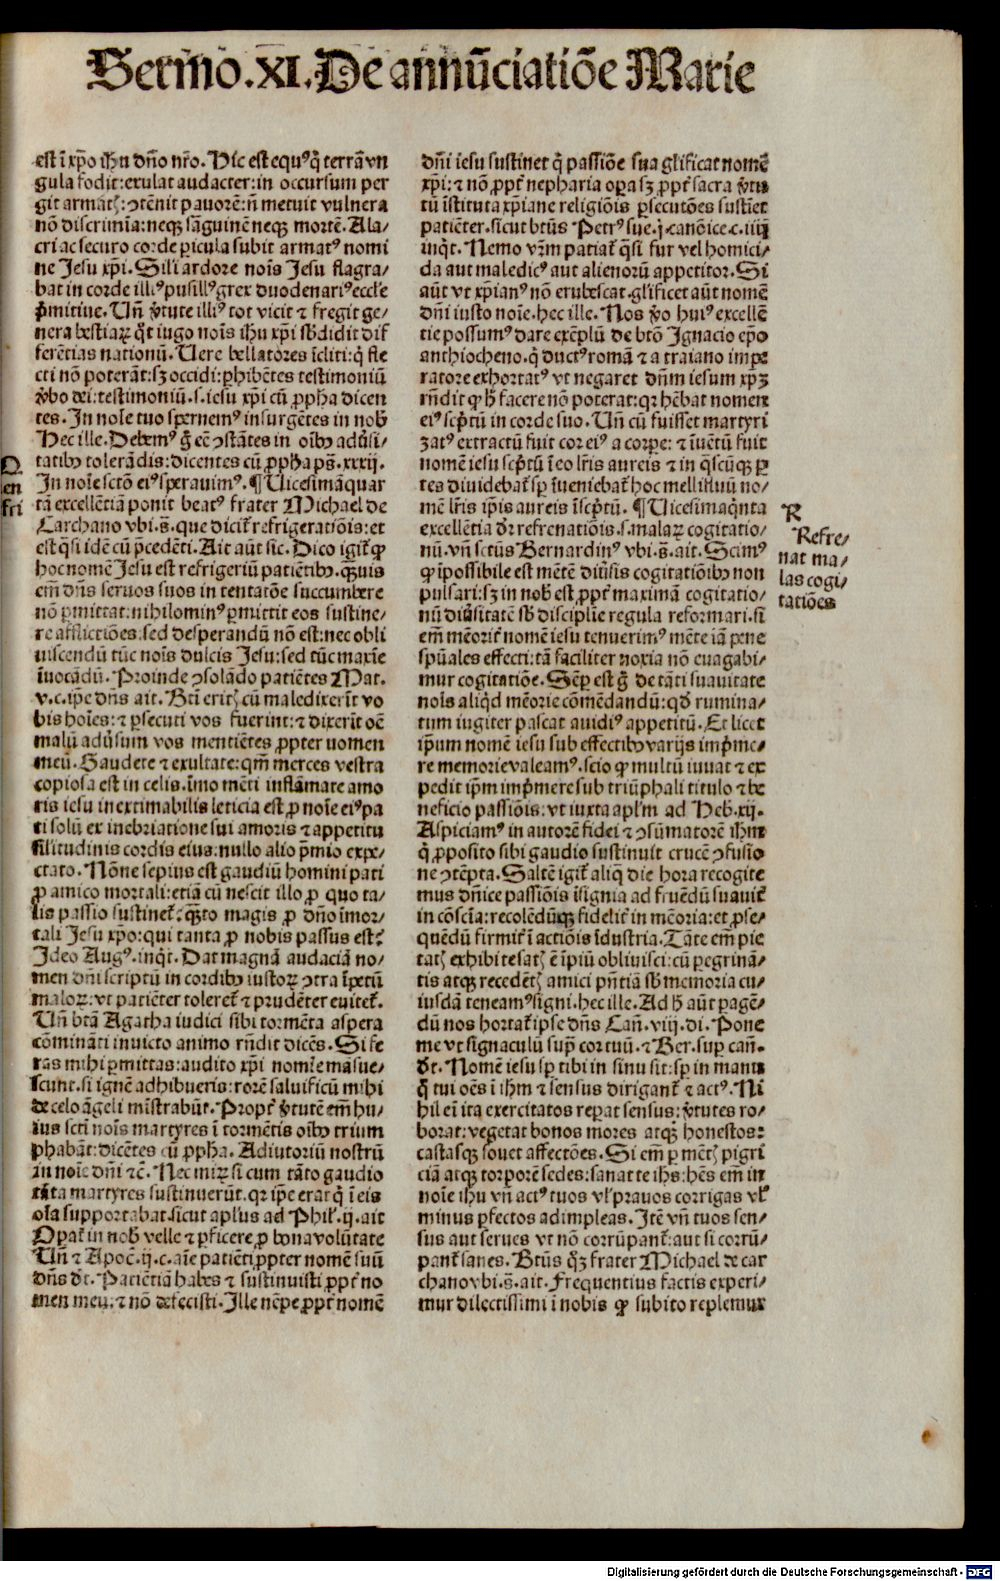 Sermo.XI.De annūciatiōe Marie
est ī xp̄o ihū dn̄o nr̄o. Hic est equꝰ q̇ terrā vn
gula fodit: exulat audacter: in occursum per
git armatꝭ: ꝯtēnit pauorē: n̄ metuit vulnera
nō discrimīa: neqꝫ sāguinē neqꝫ mortē. Ala⸗
cri ac securo corde ꝑicula subit armatꝰ nomi
ne Jesu xp̄i. Sili ardore noīs Jesu flagra⸗
bat in corde illiꝰ pusillꝰ grex duodenariꝰ eccl̄e
p̄mitiue. Vn̄ ꝟtute illiꝰ tot vicit ⁊ fregit ge⸗
nera bestiaꝝ qͣt iugo noīs ihū xp̄i sb̄didit dif
ferētias nationū. Uere bellatores īcliti: q̇ fle
cti nō poterāt: sꝫ occidi: ꝑhibētes testimoniū
ꝟbo dei: testimoniū .s. iesu xp̄i cū ꝓpha dicen
tes. In noīe tuo sꝑnemꝰ insurgētes in nob̄
Hec ille. Debemꝰ g̊ eē ꝯstātes in oībꝰ aduſi⸗
tatibꝰ tolerādis: dicentes cū ꝓpha ps̄. xxxij.
In noīe sctō eiꝰ sperauimꝰ. ¶ Uicesimāquar
tā excellētiā ponit beatꝰ frater Michael de
Carchano vbi .s̄. que dicit̄ refrigeratiōis: et
est q̄si idē cū p̄cedēti. Ait aūt sic. Dico igit̄ ꝙ
hoc nomē Jesu est refrigeriū patiētibꝰ. q̄uis
em̄ dn̄s seruos suos in tentatōe succumbere
nō ꝑmittat: nihilominꝰ ꝑmittit eos sustine⸗
re afflictiōes: sed desperandū nō est: nec obli
uiscendū tūc noīs dulcis Jesu: sed tūc maxīe
īuocādū. Proinde ꝯsolādo patiētes Mat.
v. c. ip̄e dn̄s ait. Btī eritꝭ cū maledixerīt vo
bis hoīes: ⁊ ꝑsecuti vos fuerint: ⁊ dixerīt oē
malū aduſum vos mentiētes ꝓpter nomen
meū. Gaudete ⁊ exultate: qm̄ merces vestra
copiosa est in celis. īmo mēti inflāmate amo
ris iesu inextimabilis leticia est ꝓ noīe eiꝰ pa
ti solū ex inebriatione sui amoris ⁊ appetitu
silitudinis cordis eius: nullo alio p̄mio expe⸗
ctato. Nōne sepius est gaudiū homini pati
ꝓ amico mortali: etiā cū nescit illo ꝓ quo ta⸗
lis passio sustinet̄: q̄to magis ꝓ dn̄o īmor⸗
tali Jesu xp̄o: qui tanta ꝓ nobis passus est?
Ideo Augꝰ. inqͥt. Dat magnā audaciā no⸗
men dn̄i scriptū in cordibꝰ iustoꝝ ꝯtra īpetū
maloꝝ: vt patiēter toleret̄ ⁊ prudēter euitet̄.
Vn̄ btā Agatha iudici sibi tormēta aspera
cōmināti inuicto animo rn̄dit dicēs. Si fe
ras mihi ꝑmittas: audito xp̄i noīe māsue⸗
scunt. si ignē adhibueris: rorē saluificū mihi
de celo āgeli mīstrabūt. Propt̄ ꝟtutē em̄ hu⸗
ius sctī noīs martyres ī tormētis oībꝰ trium
phabāt: dicētes cū ꝓpha. Adiutoriū nostrū
in noīe dn̄i ⁊c̄. Nec miꝝ si cum tāto gaudio
tāta martyres sustinuerūt. qꝛ ip̄e erat q̇ ī eis
oīa supportabat. sicut apl̄us ad Phil̄. ij. ait
Oꝑat̄ in nob̄ velle ⁊ ꝑficere ꝓ bona volūtate
Vn̄ ⁊ Apoc̄. ij. c. aīe patiēti ꝓpter nomē suū
dn̄s dt̄. Patiētiā habes ⁊ sustinuisti ꝓpt̄ no
men meū: ⁊ nō defecisti. Ille nēpe ꝓpt̄ nomē
dn̄i iesu sustinet q̇ passiōe sua glificat nomē
xp̄i: ⁊ nō ꝓpt̄ nepharia oꝑa sꝫ ꝓpt̄ sacra ꝟtu
tū īstituta xp̄iane religiōis ꝑsecutōes sustīet
patiēter. sicut btūs Petrꝰ sue .j. canōice. c. iiij
inqͥt. Nemo vr̄m patiat̄ q̄si fur vel homici⸗
da aut maledicꝰ aut alienorū appetitor. Si
aūt vt xp̄ianꝰ nō erubescat. glificet aūt nomē
dn̄i iusto noīe. hec ille. Nos ꝟo huiꝰ excellē
tie possumꝰ dare exēplū de btō Ignacio ep̄o
anthiocheno. q̇ ductꝰ romā ⁊ a traiano impe
ratore exhortatꝰ vt negaret dn̄m iesum xp̄ꝫ
rn̄dit ꝙ h̄ facere nō poterat: qꝛ hēbat nomen
eiꝰ scptū in corde suo. Vn̄ cū fuisset martyri
zatꝰ extractū fuit cor eiꝰ a corꝑe: ⁊ īuētū fuit
nomē iesu scptū ī eo lr̄is aureis ⁊ in q̄scūqꝫ ꝑ
tes diuidebat̄ sꝑ īueniebat̄ hoc mellifluū no⸗
mē lr̄is ip̄is aureis īscptū. ¶ Uicesimaqͥnta
excellētia dr̄ refrenatiōis .s. malaꝝ cogitatio⸗
nū. vn̄ sctūs Bernardinꝰ vbi .s̄. ait. Scimꝰ
ꝙ īpossibile est mētē diuſis cogitatiōibꝰ non
pulsari: sꝫ in nob̄ est ꝓpt̄ maximā cogitatio⸗
nū diuſitatē sb̄ discipline regula reformari. si
em̄ mēorit̄ nomē iesu tenuerimꝰ mēte iā pene
spūales effecti: tā faciliter noxia nō euagabi⸗
mur cogitatiōe. Sēꝑ est g̊ de tāti suauitate
noīs aliqͥd mēorie cōmēdandū: qd̄ rumina⸗
tum iugiter pascat auidiꝰ appetitū. Et licet
ip̄um nomē iesu sub effectibꝰ varijs imp̄me⸗
re memorie valeamꝰ. scio ꝙ multū iuuat ⁊ ex
pedit ip̄m imp̄mere sub triūphali titulo ⁊ be
neficio passiōis: vt iuxta apl̄m ad Heb̄. xij.
Aspiciamꝰ in autorē fidei ⁊ ꝯsūmatorē ihm̄
q̇ ꝓposito sibi gaudio sustinuit crucē ꝯfusio
ne ꝯtēpta. Saltē igit̄ aliq̄ die hora recogite
mus dn̄ice passiōis īsignia ad fruēdū suauit̄
in cōscīa: recolēdūqꝫ fidelit̄ in mēoria: et ꝓse⸗
quēdū firmit̄ ī actiōis īdustria. Tāte em̄ pie
tatꝭ exhibite satꝭ ē īpiū obliuisci: cū ꝑegrinā⸗
tis atqꝫ recedētꝭ amici pn̄tiā sb̄ memoria cu⸗
iusdā teneamꝰ signi. hec ille. Ad h̄ aūt ꝑagē⸗
dū nos hortat̄ ipse dn̄s Cān. viij. di. Pone
me vt signaculū suꝑ cor tuū. ⁊ Ber. suꝑ cān.
dt̄. Nomē iesu sꝑ tibi in sinu sit: sꝑ in manu
q̊ tui oēs ī ihm̄ ⁊ sensus dirigant̄ ⁊ actꝰ. Ni
hil eī ita exercitatos reꝑat sensus: ꝟtutes ro⸗
borat: vegetat bonos mores atqꝫ honestos:
castasqꝫ fouet affectōes. Si em̄ ꝑ mētꝭ pigri
ciā atqꝫ torporē sedes: sanat te ihs̄: hēs em̄ in
noīe ihū vn̄ actꝰ tuos vl̄ prauos corrigas vl̄
minus ꝑfectos adimpleas. Itē vn̄ tuos sen⸗
sus aut serues vt nō corrūpant̄: aut si corrū⸗
pant̄ sanes. Btūs qͦꝫ frater Michael de car
chano vbi .s̄. ait. Frequentius factis experi⸗
mur dilectissimi ī nobis ꝙ subito replemur
Q
en
fri
R
Refre⸗
nat ma⸗
las cogi⸗
tatiōes
Digitalisierung gefördert durch die Deutsche Forschungsgemeinschaft - DFG